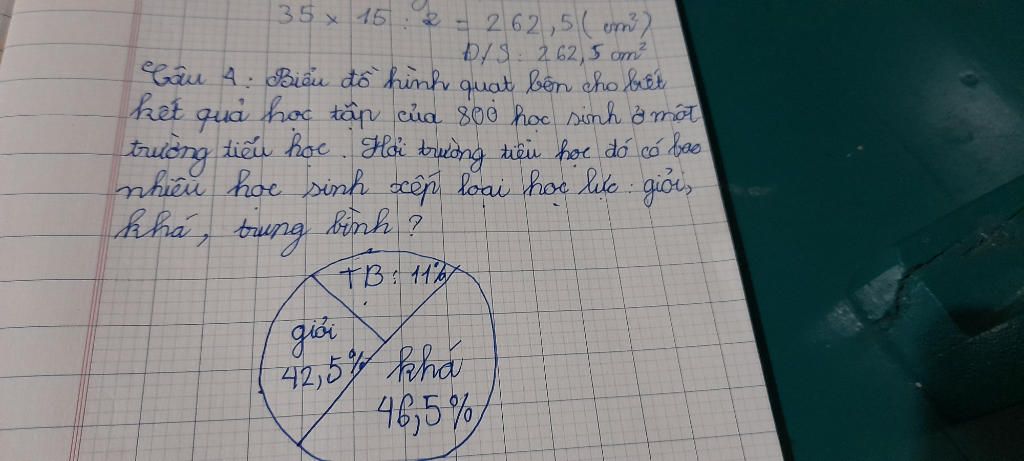 35 x 15 : 2 = 262,5 (cm²)
Đ/S : 262,5 cm²
Câu 4 : Biểu đồ hình quạt bên cho biết
kết quả học tập của 800 học sinh ở một
trường tiểu học. Hỏi trường tiểu học đó có bao
nhiêu học sinh xếp loại học lực : giỏi,
khá, trung bình ?
TB : 11%
giỏi
42,5%
khá
46,5%